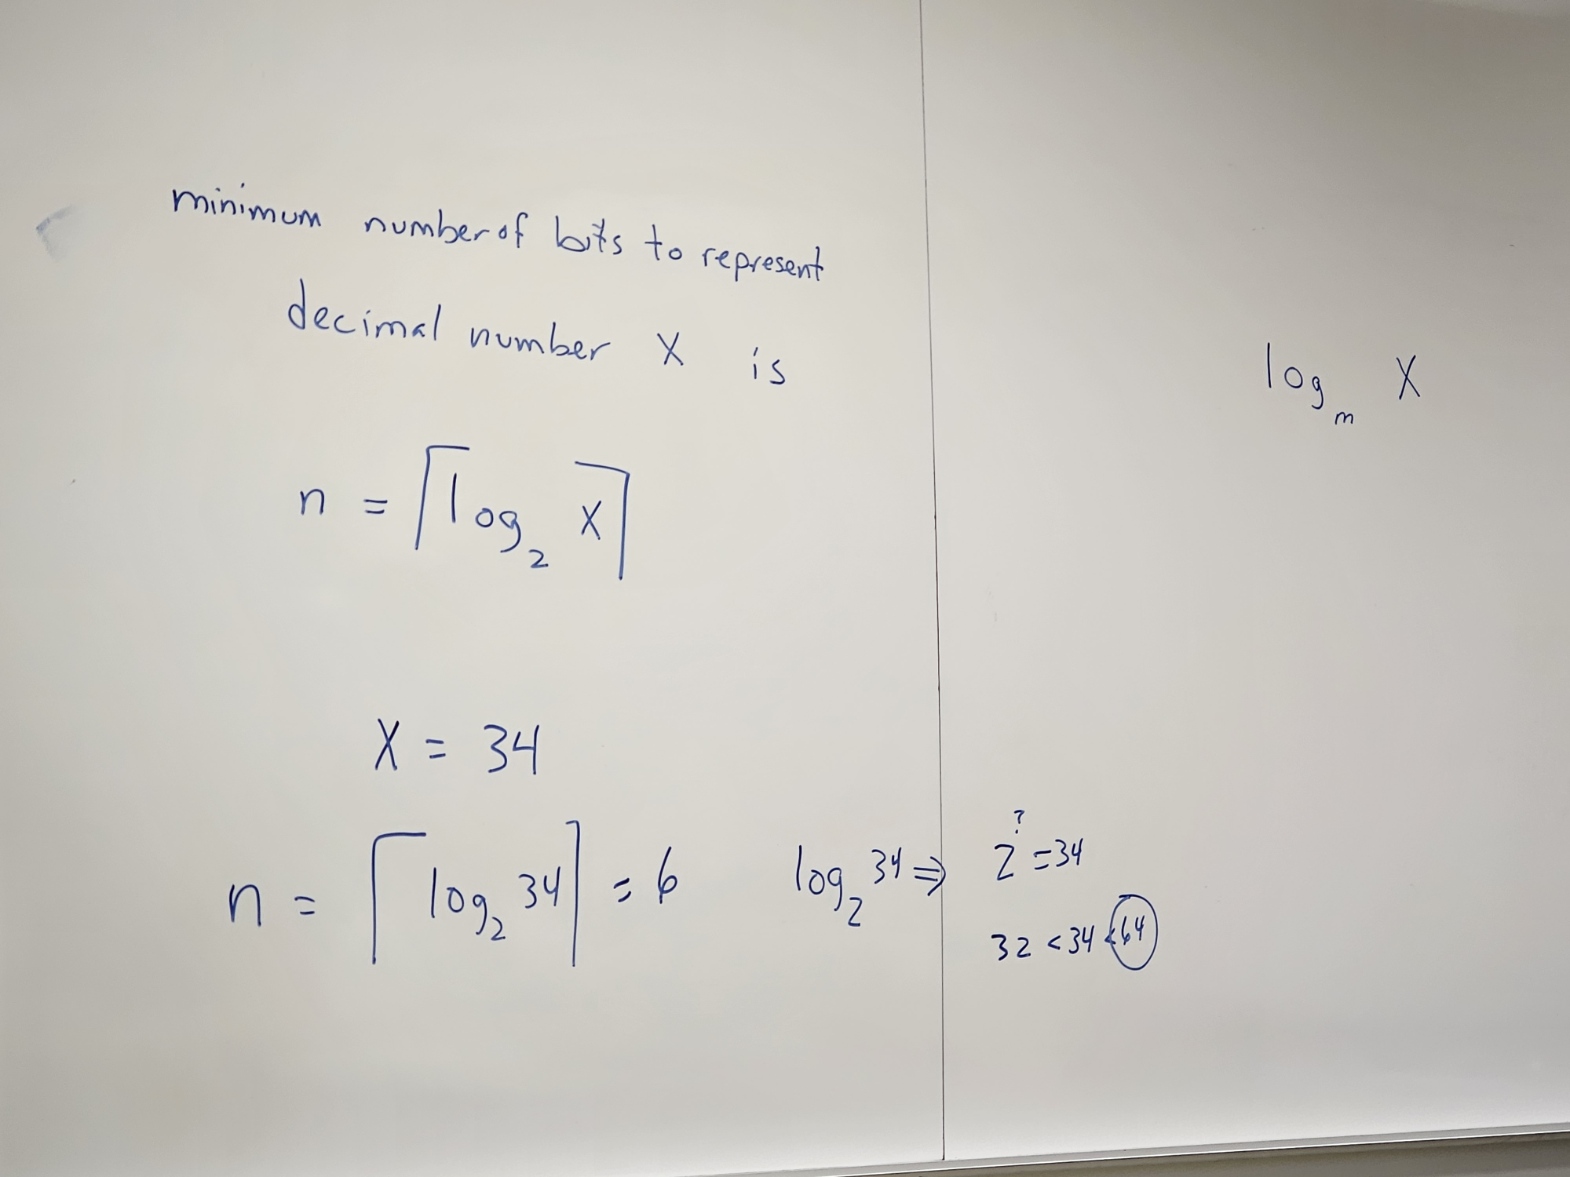 minimum number of bits to represent
decimal number X is
n = ⌈log₂ X⌉
logₘ X
X = 34
n = ⌈log₂ 34⌉ = 6
log₂ 34 ⇒ 2^? = 34
32 < 34 < 64